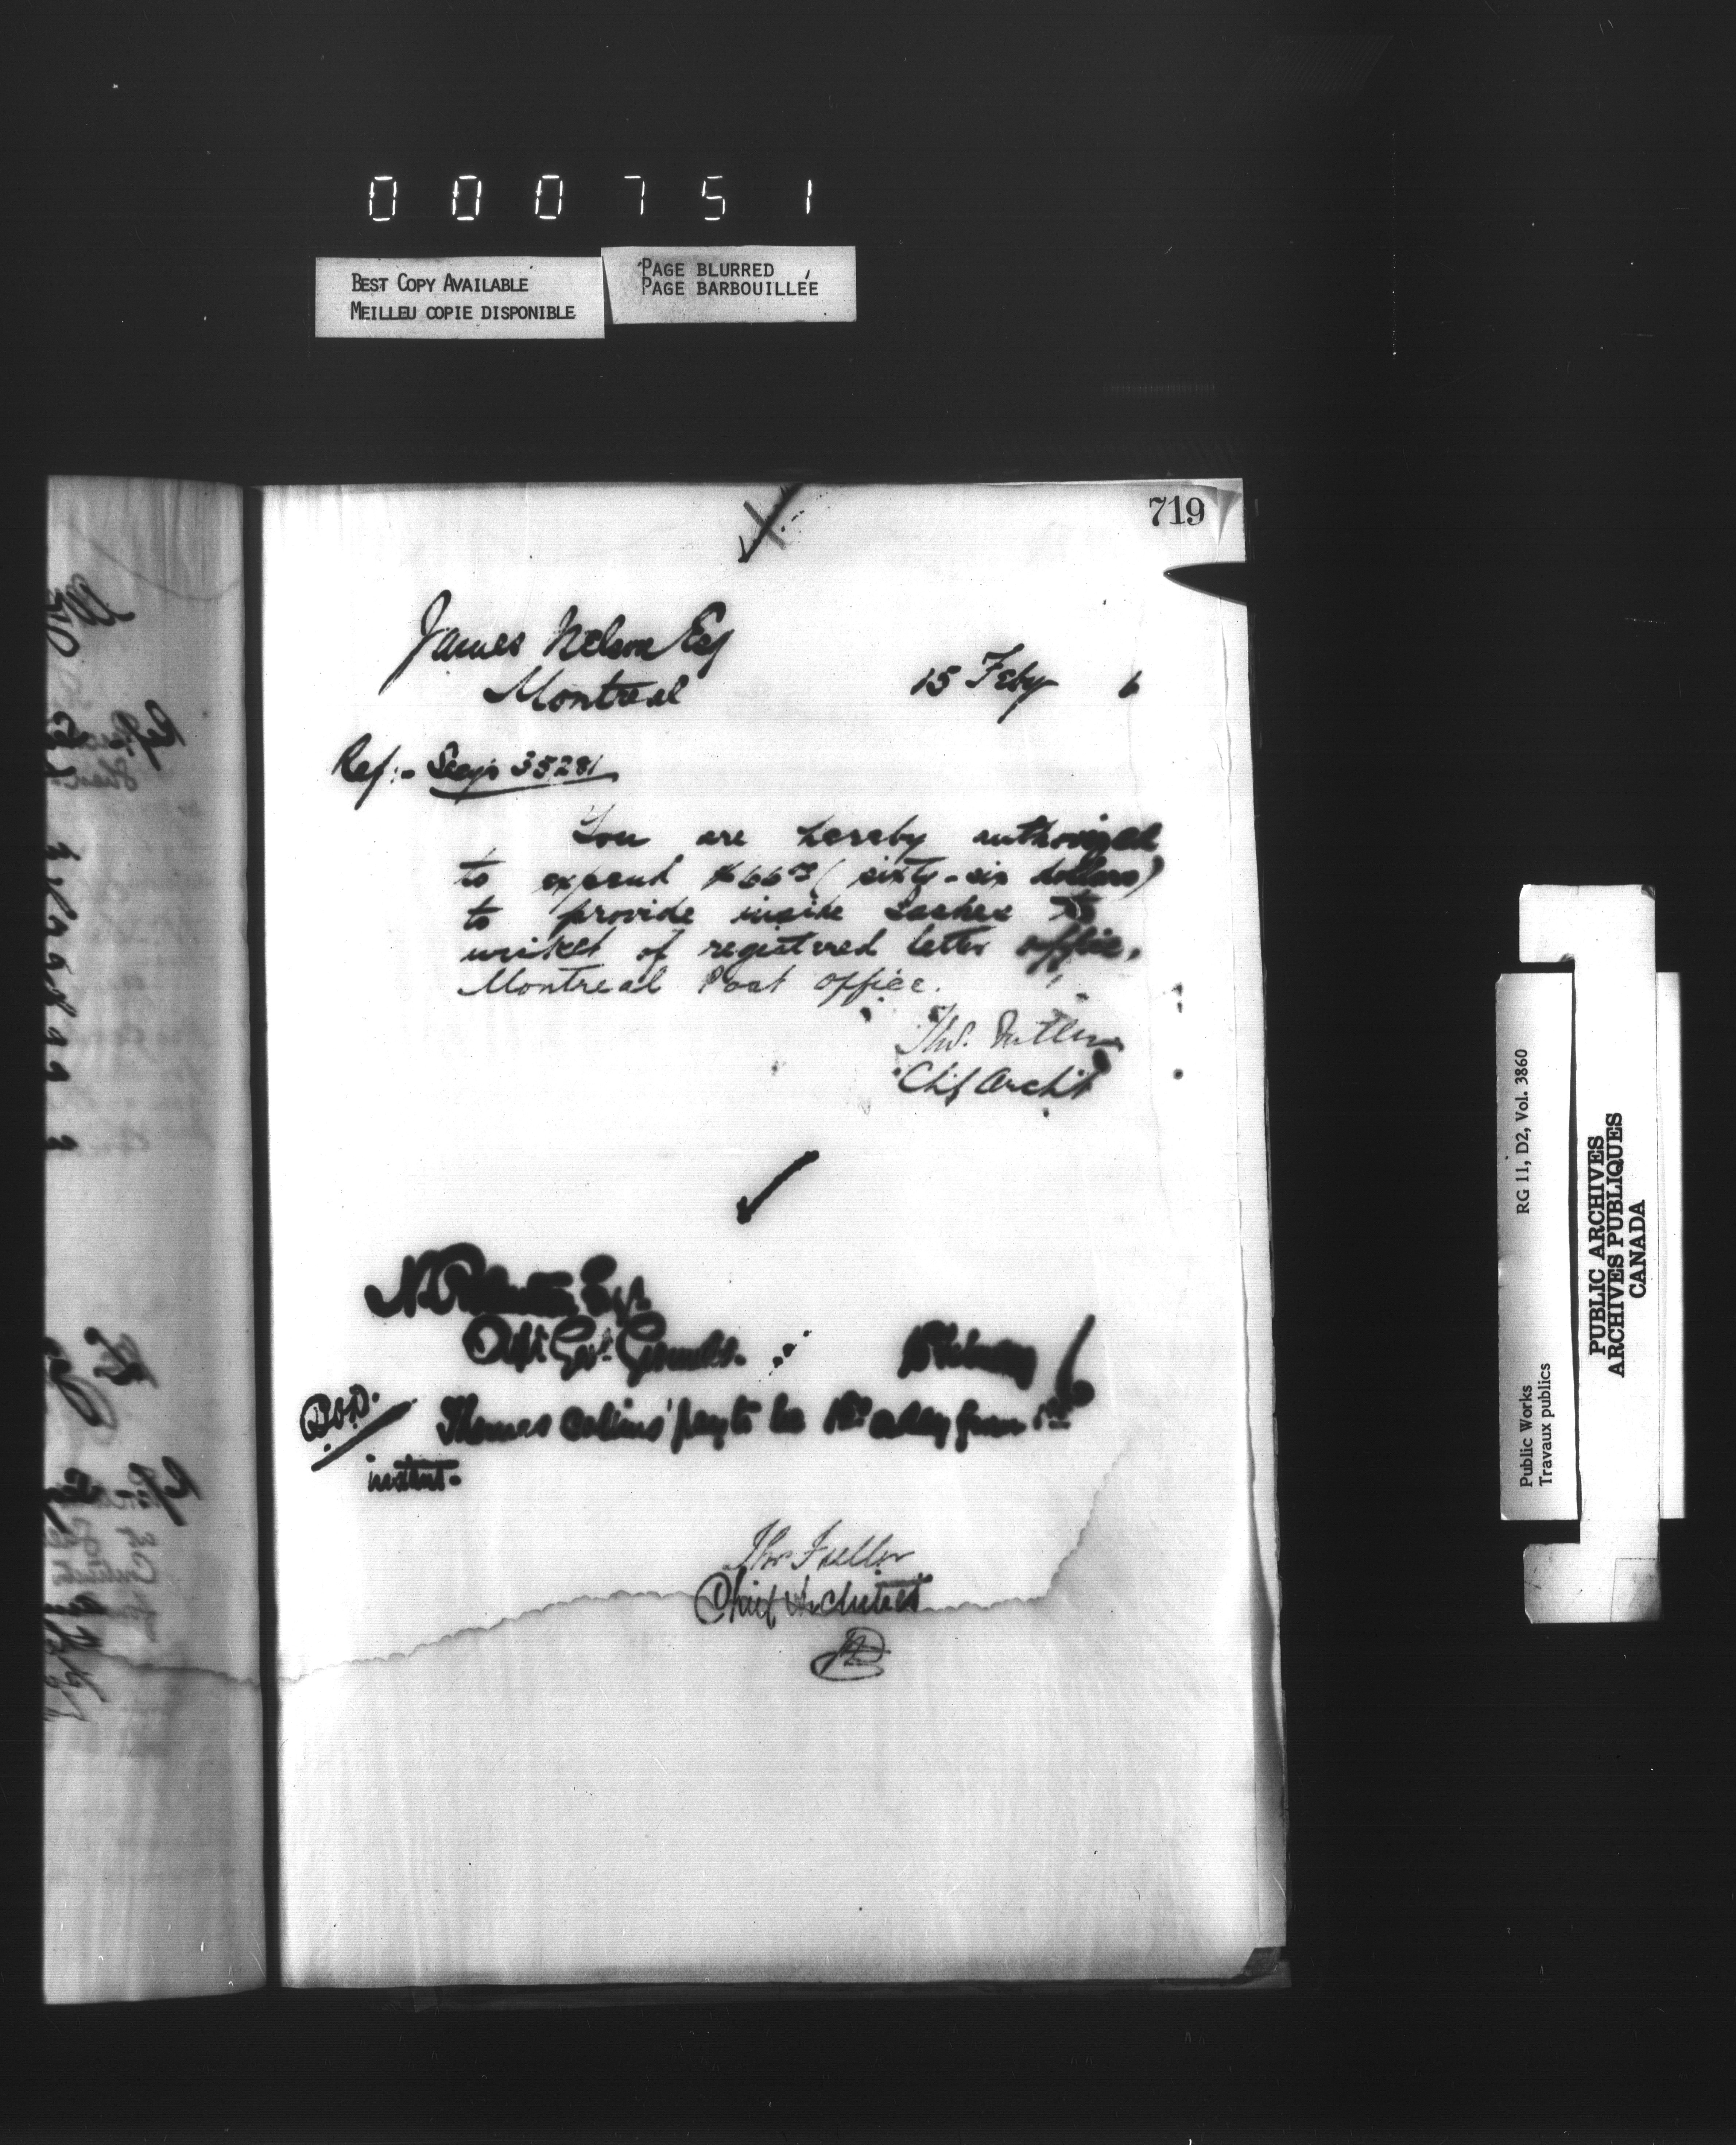 000751
BEST COPY AVAILABLE
MEILLEU COPIE DISPONIBLE
PAGE BLURRED
PAGE BARBOUILLÉE
719
James Nelson Esq
Montreal
15 Feby 6
Ref:- Secy's 35281
You are hereby authorized
to expend $66.00 (sixty-six dollars)
to provide inside Sashes to
wicket of registered letter office,
Montreal Post office.
Thos. Fuller
Chf Archt
Esqr.
15 6
Thomas Collins' pay to be from 1st
instant.
Thos Fuller
Chief Architect
RG 11, D2, Vol. 3860
Public Works
Travaux publics
PUBLIC ARCHIVES
ARCHIVES PUBLIQUES
CANADA